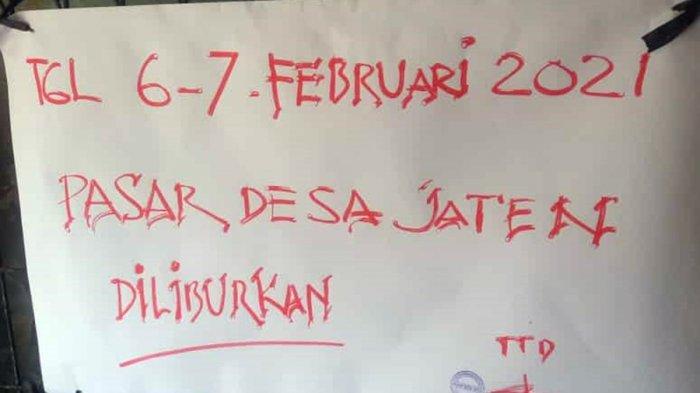 TGL 6-7-FEBRUARI 2021
PASAR DESA JATEN
DILIBURKAN
TTD